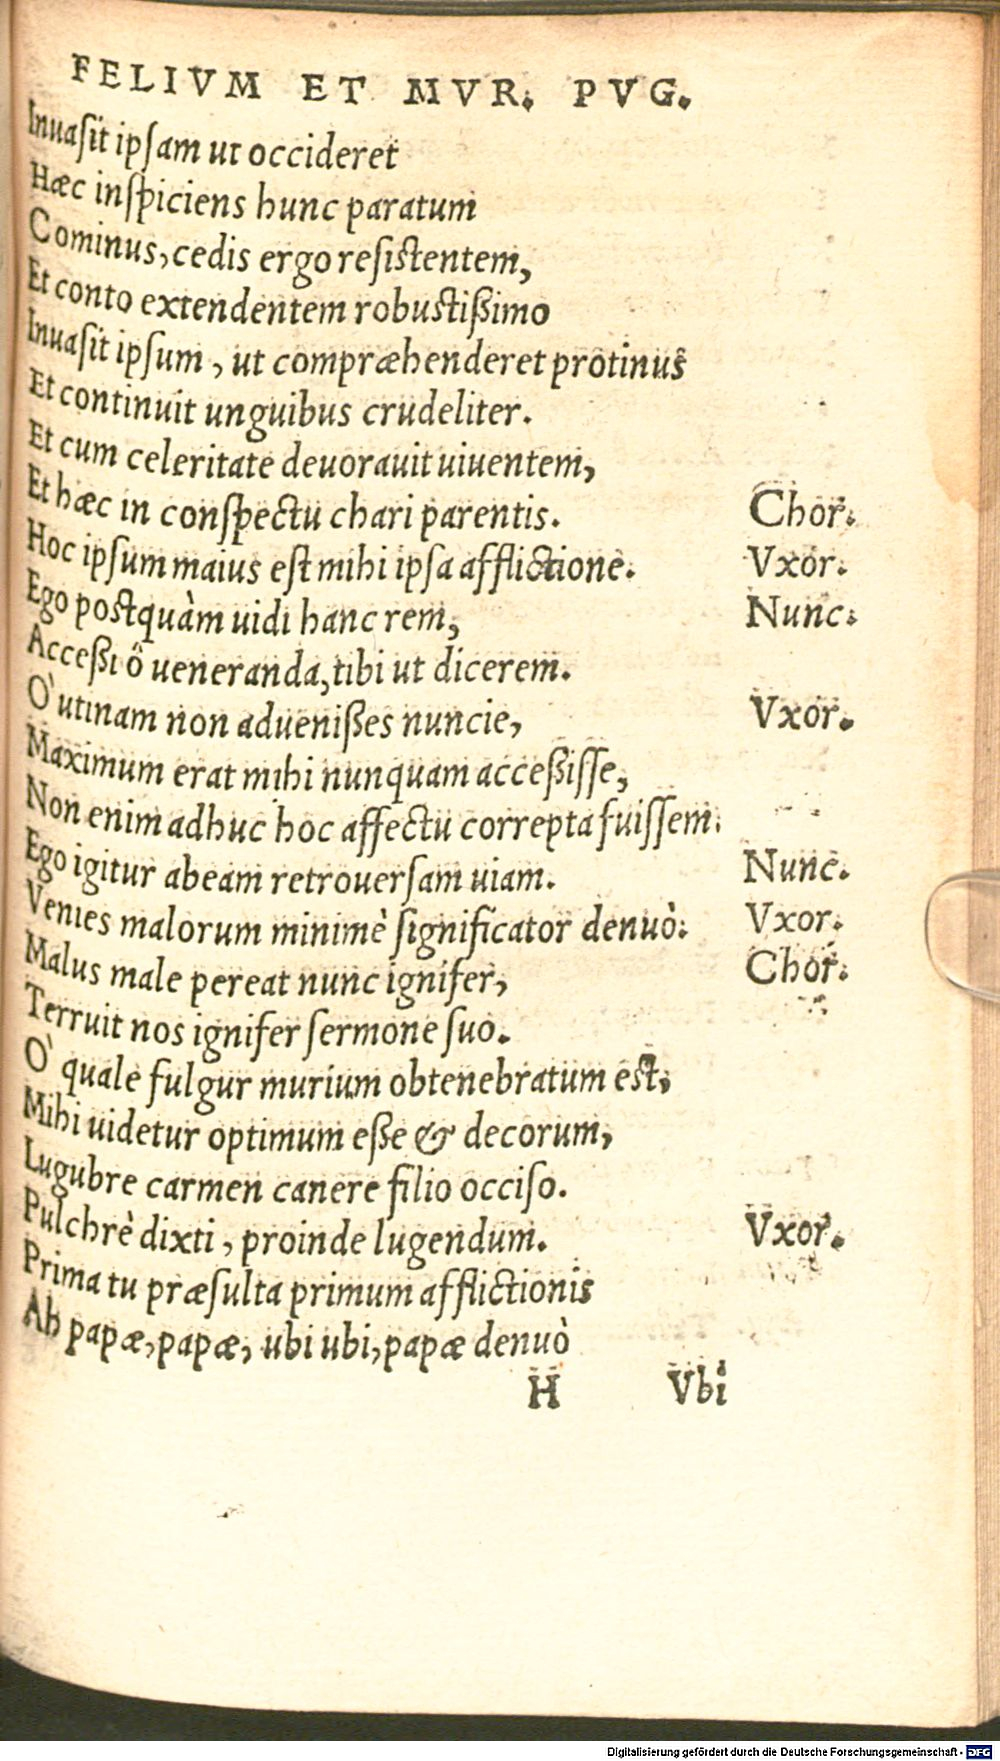 FELIVM ET MVR. PVG.
Inuaſit ipſam ut occideret
Hæc inſpiciens hunc paratum
Cominus, cedis ergo reſiſtentem,
Et conto extendentem robustißimo
Inuaſit ipſum, ut compræhenderet protinus
Et continuit unguibus crudeliter.
Et cum celeritate deuorauit uiuentem,
Et hæc in conſpectu chari parentis. Chor.
Hoc ipſum maius eſt mihi ipſa afflictione. Vxor.
Ego postquàm uidi hanc rem, Nunc.
Acceßi ô ueneranda, tibi ut dicerem.
O' utinam non adueniſſes nuncie, Vxor.
Maximum erat mihi nunquam acceßiſſe,
Non enim adhuc hoc affectu correpta fuiſſem.
Ego igitur abeam retrouerſam uiam. Nunc.
Venies malorum minimè ſignificator denuò. Vxor.
Malus male pereat nunc ignifer, Chor.
Terruit nos ignifer ſermone ſuo.
O' quale fulgur murium obtenebratum est,
Mihi uidetur optimum eße & decorum,
Lugubre carmen canere filio occiſo.
Pulchrè dixti, proinde lugendum. Vxor.
Prima tu præſulta primum afflictionis
Ah papæ, papæ, ubi ubi, papæ denuò
H Vbi
Digitalisierung gefördert durch die Deutsche Forschungsgemeinschaft - DFG